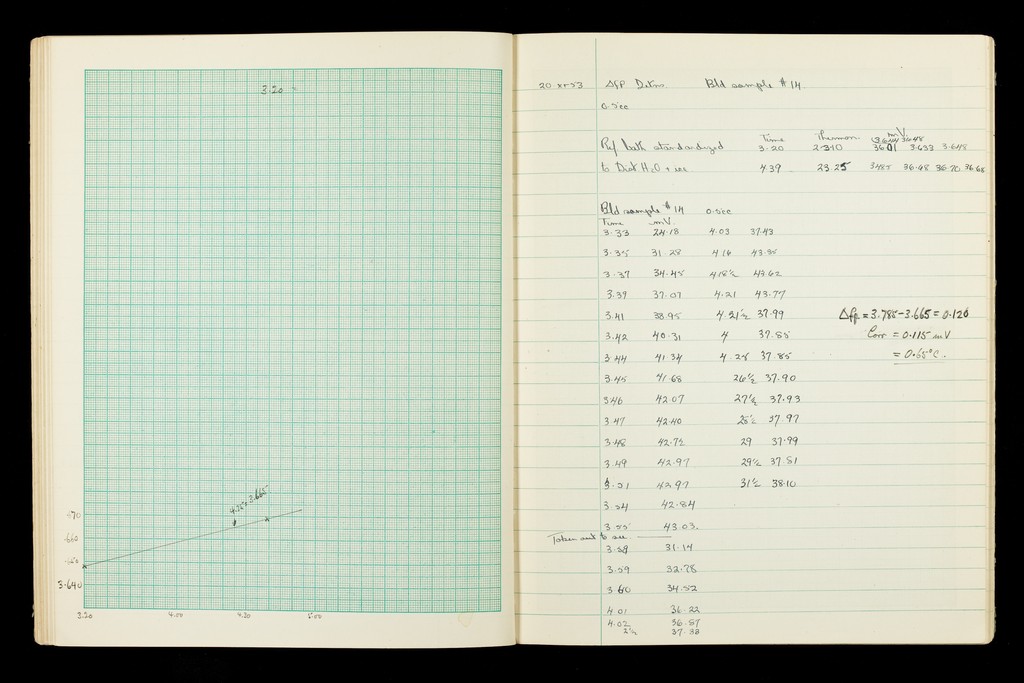 3.20
4.25 = 3.665
.670
.660
3.640
3.20 4.00 4.20 5.00
20 xi-53 Δfp Detns. Bld sample #14
0.5cc
Time Thermom mV
3.648
Ref bath standardized 3.20 23.10 3601 3.633 3.648
to Dist H2O + ice 4.39 23.25 3485 36.48 36.70 36.68
Bld sample #14 0.5cc
Time mV
3.33 24.18 4.03 37.43
3.35 31.28 4.16 43.35
3.37 34.45 4.18½ 43.62
3.39 37.07 4.21 43.77
3.41 38.95 4.21½ 37.99 Δfp = 3.785 - 3.665 = 0.120
3.42 40.31 4 37.85 Corr = 0.115 mV
3.44 41.34 4.25 37.85 = 0.65°C.
3.45 41.68 26½ 37.90
3.46 42.07 27½ 37.93
3.47 42.40 37.97
3.48 42.72 29 37.99
3.49 42.97 29½ 37.81
3.51 42.97 31½ 38.10
3.54 42.84
3.55 43.03
Taken out to see
3.58 31.14
3.59 32.78
3.60 34.52
4.01 36.22
4.02 36.87
2½ 37.38